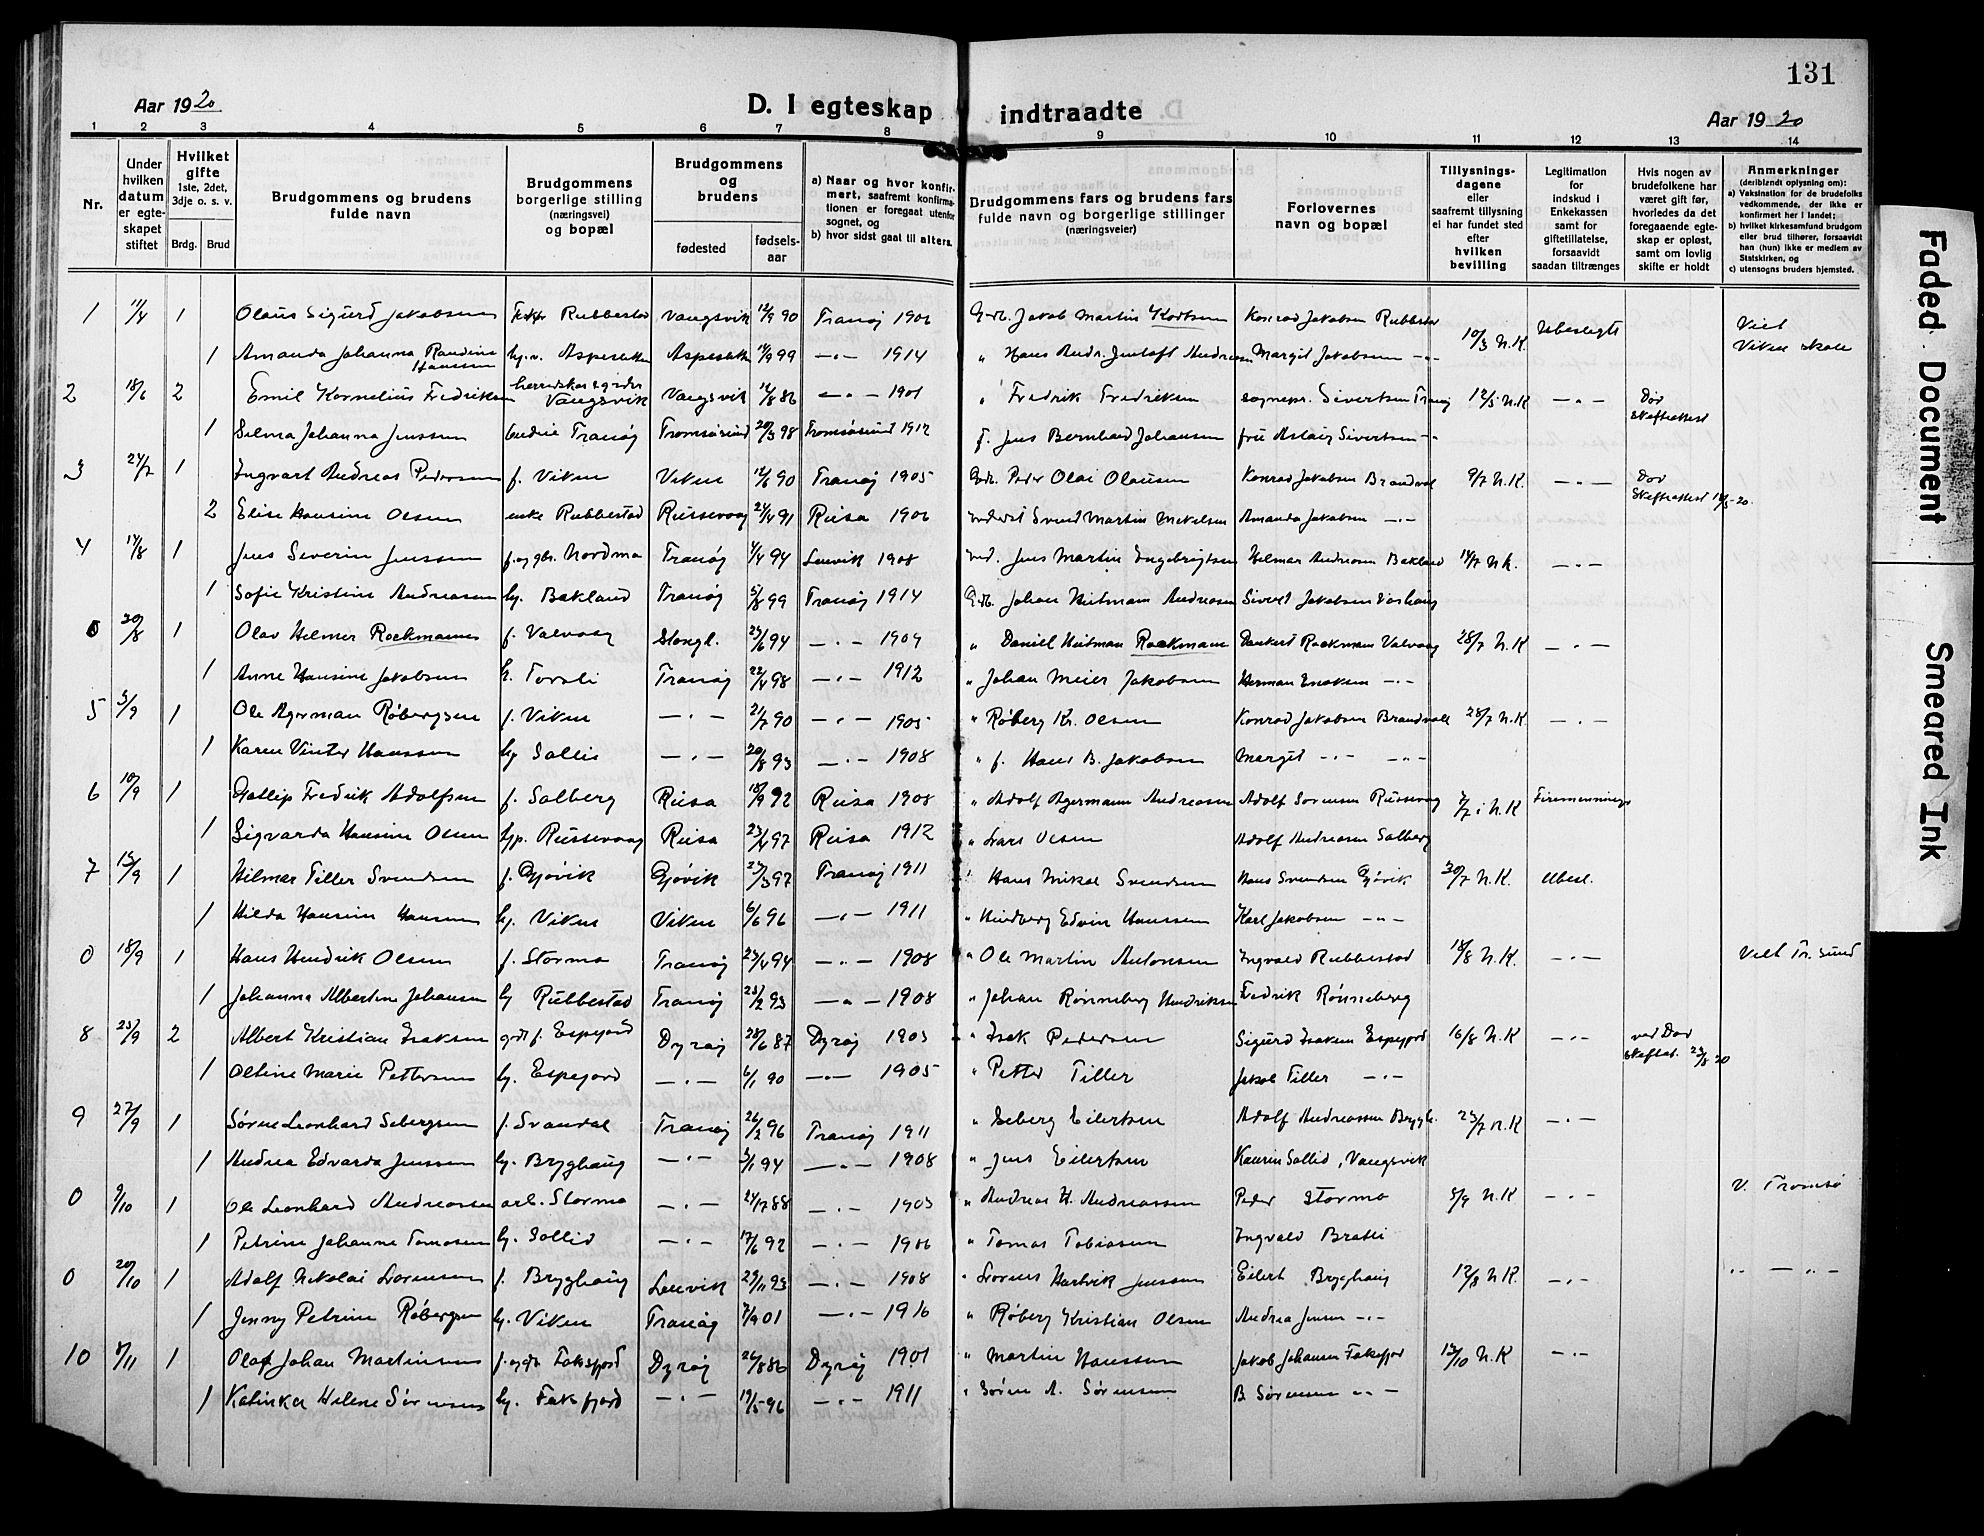 131
Aar 1920
D. I egteskap indtraadte
Aar 1920
1 2 3 4 5 6 7 8 9 10 11 12 13 14
Nr.
Under hvilken datum er egteskapet stiftet
Hvilket gifte 1ste, 2det, 3dje o. s. v.
Brdg. Brud
Brudgommens og brudens fulde navn
Brudgommens borgerlige stilling (næringsvei) og bopæl
Brudgommens og brudens
fødested fødsels-aar
a) Naar og hvor konfirmert, saafremt konfirmationen er foregaat utenfor sognet, og
b) hvor sidst gaat til alters.
Brudgommens fars og brudens fars fulde navn og borgerlige stillinger (næringsveier)
Forlovernes navn og bopæl
Tillysningsdagene eller saafremt tillysning ei har fundet sted efter hvilken bevilling
Legitimation for indskud i Enkekassen samt for giftetillatelse, forsaavidt saadan tiltrænges
Hvis nogen av brudefolkene har været gift før, hvorledes da det foregaaende egteskap er opløst, samt om lovlig skifte er holdt
Anmerkninger (deriblandt oplysning om):
a) Vaksination for de brudefolks vedkommende, der ikke er konfirmert her i landet;
b) hvilket kirkesamfund brudgom eller brud tilhører, forsaavidt han (hun) ikke er medlem av Statskirken, og
c) utensogns bruders hjemsted.
1 11/4 1 Olaus Sigurd Jakobsen Rubbestad Vangsvik 12/9 90 Tranøj 1906 Jakob Martin Kortsen Konrad Jakobsen Rubbestad 10/3 N.K Ubeslegtt Viet Viken skole
1 Amanda Johanna Randine Hanssen Aspesletten Aspesletten 99 —"— 1914 " Hans Andr. Jentoft Andreasen Margit Jakobsen —"—
2 18/6 2 Emil Kornelius Fredriksen Vangsvik Vangsvik 86 —"— 1901 " Fredrik Fredriksen sognepr. Sivertsen Tranøj 12/5 N.K —"— Død Skifteattest
1 Selma Johanna Jenssen Tranøj Tromsøsund 20/3 98 Tromsøsund 1912 f. Jens Bernhard Johansen fru Aslaug Sivertsen —"—
3 24/7 1 Ingvart Andreas Pedersen f. Viken Viken 12/6 90 Tranøj 1905 Gdr. Peder Olai Olausen Konrad Jakobsen Brandvol 9/7 N.K. —"— Død Skifteattest 18/5-20
2 Elise Hansine Olsen enke Rubbestad Russevaag 24/4 91 Reisa 1906 Svend Martin Mikelsen Amanda Jakobsen —"—
4 14/8 1 Jens Severin Jenssen f. og gbr. Nordmo Tranøj 4/4 94 Lenvik 1908 Jens Martin Ingebrigtsen Hilmar Andreasen Bakland 14/7 N.K. —"—
1 Sofie Kristine Andreasen hj. Bakland Tranøj 5/8 99 Tranøj 1914 Johan Hitman Andreasen Sivert Jakobsen Vashaug
0 20/8 1 Olav Helmer Rockmann f. Valvaag Stongl. 23/6 94 —"— 1909 " Daniel Hitman Rockmann Dankert Rockman Valvaag 28/7 N.K —"—
1 Anne Hansine Jakobsen h. Torsli Tranøj 22/4 98 —"— 1912 " Johan Meier Jakobsen Herman Enoksen —"—
5 3/9 1 Ole Agerman Røbergsen f. Viken —"— 21/7 90 —"— 1905 " Røberg Kr. Olsen Konrad Jakobsen Brandvoll 28/7 N.K —"—
1 Karen Vinter Hanssen hj Sollii —"— 20/8 93 —"— 1908 " f. Hans B. Jakobsen Margit —"— —"—
6 10/9 1 Gotlip Fredrik Adolfsen f. Solberg Reisa 18/9 92 Reisa 1908 " Adolf Agermann Andreasen Adolf Sorensen Russevaag 7/7 N.K Firemenninger
1 Sigvarda Hansine Olsen hjp. Russevaag Reisa 23/4 97 Reisa 1912 " Lars Olsen Adolf Andreasen Solberg
7 13/9 1 Hilmar Tiller Svendsen f. Gjøvik Gjøvik 23/3 97 Tranøj 1911 " Hans Mikal Svendsen Hans Svendsen Gjøvik 30/7 N.K. Ubesl.
1 Hilda Hansine Hansen hj. Viken Viken 6/6 96 —"— 1911 " Hindberg Edvin Hanssen Karl Jakobsen —"—
0 18/9 1 Hans Hendrik Olsen f. Stormo Tranøj 23/4 94 —"— 1908 " Ole Martin Antonsen Ingvald Rubbestad 18/8 N.K. —"— Viet Tr. Sund
1 Johanna Albertine Johansen hj Rubbestad Tranøj 23/2 93 —"— 1908 " Johan Rønneberg Hendriksen Fredrik Rønneberg
8 25/9 2 Albert Kristian Isaksen f. Espejord Dyrøj 28/6 87 Dyrøj 1903 " Isak Pedersen Sigurd Isaksen Espejord 16/8 N.K —"— ved Død skifteat. 23/8 20
1 Oltine Marie Pettersen hj. Espejord —"— 6/1 90 —"— 1905 " Petter Tiller Jakob Tiller —"—
9 27/9 1 Søren Leonhard Sebergsen f. Svandal Tranøj 26/2 96 Tranøj 1911 " Seberg Eilertsen Adolf Andreassen Bryggh. 23/7 N.K —"—
1 Andrea Edvarda Jenssen hj. Bryghaug —"— 3/1 94 —"— 1908 " Jens Eilertsen Kaurin Sollid, Vangsvik
0 9/10 1 Ole Leonhard Andreasen arb. Stormo —"— 88 —"— 1903 " Andreas H. Andreassen Peder Stormo 5/9 N.K —"— V. Tromsø
1 Petrine Johanne Tomasen hj. Sollid —"— 17/6 92 —"— 1906 " Tomas Tobiasen Ingvald Bratli
0 20/10 1 Adolf Nikolai Lorensen f. Bryghaug Lenvik 29/11 93 —"— 1908 " Lorens Hartvik Jenssen Eilert Bryghaug 12/8 N.K. —"— " — " —
1 Jenny Petrine Røbergsen hj. Viken Tranøj 7/9 01 —"— 1916 " Røberg Kristian Olsen Andrea Jensen —"—
10 8/11 1 Olaf Johan Martinsen f. og gbr Faksfjord Dyrøj 26/8 86 Dyrøj 1901 " Martin Hanssen Jakob Johansen Faksfjord 13/10 N.K —"—
1 Katinka Helene Sørensen hj. Faksfjord —"— 19/5 96 —"— 1911 " Søren A. Sørensen B. Sørensen —"—
Faded Document
Smeared Ink